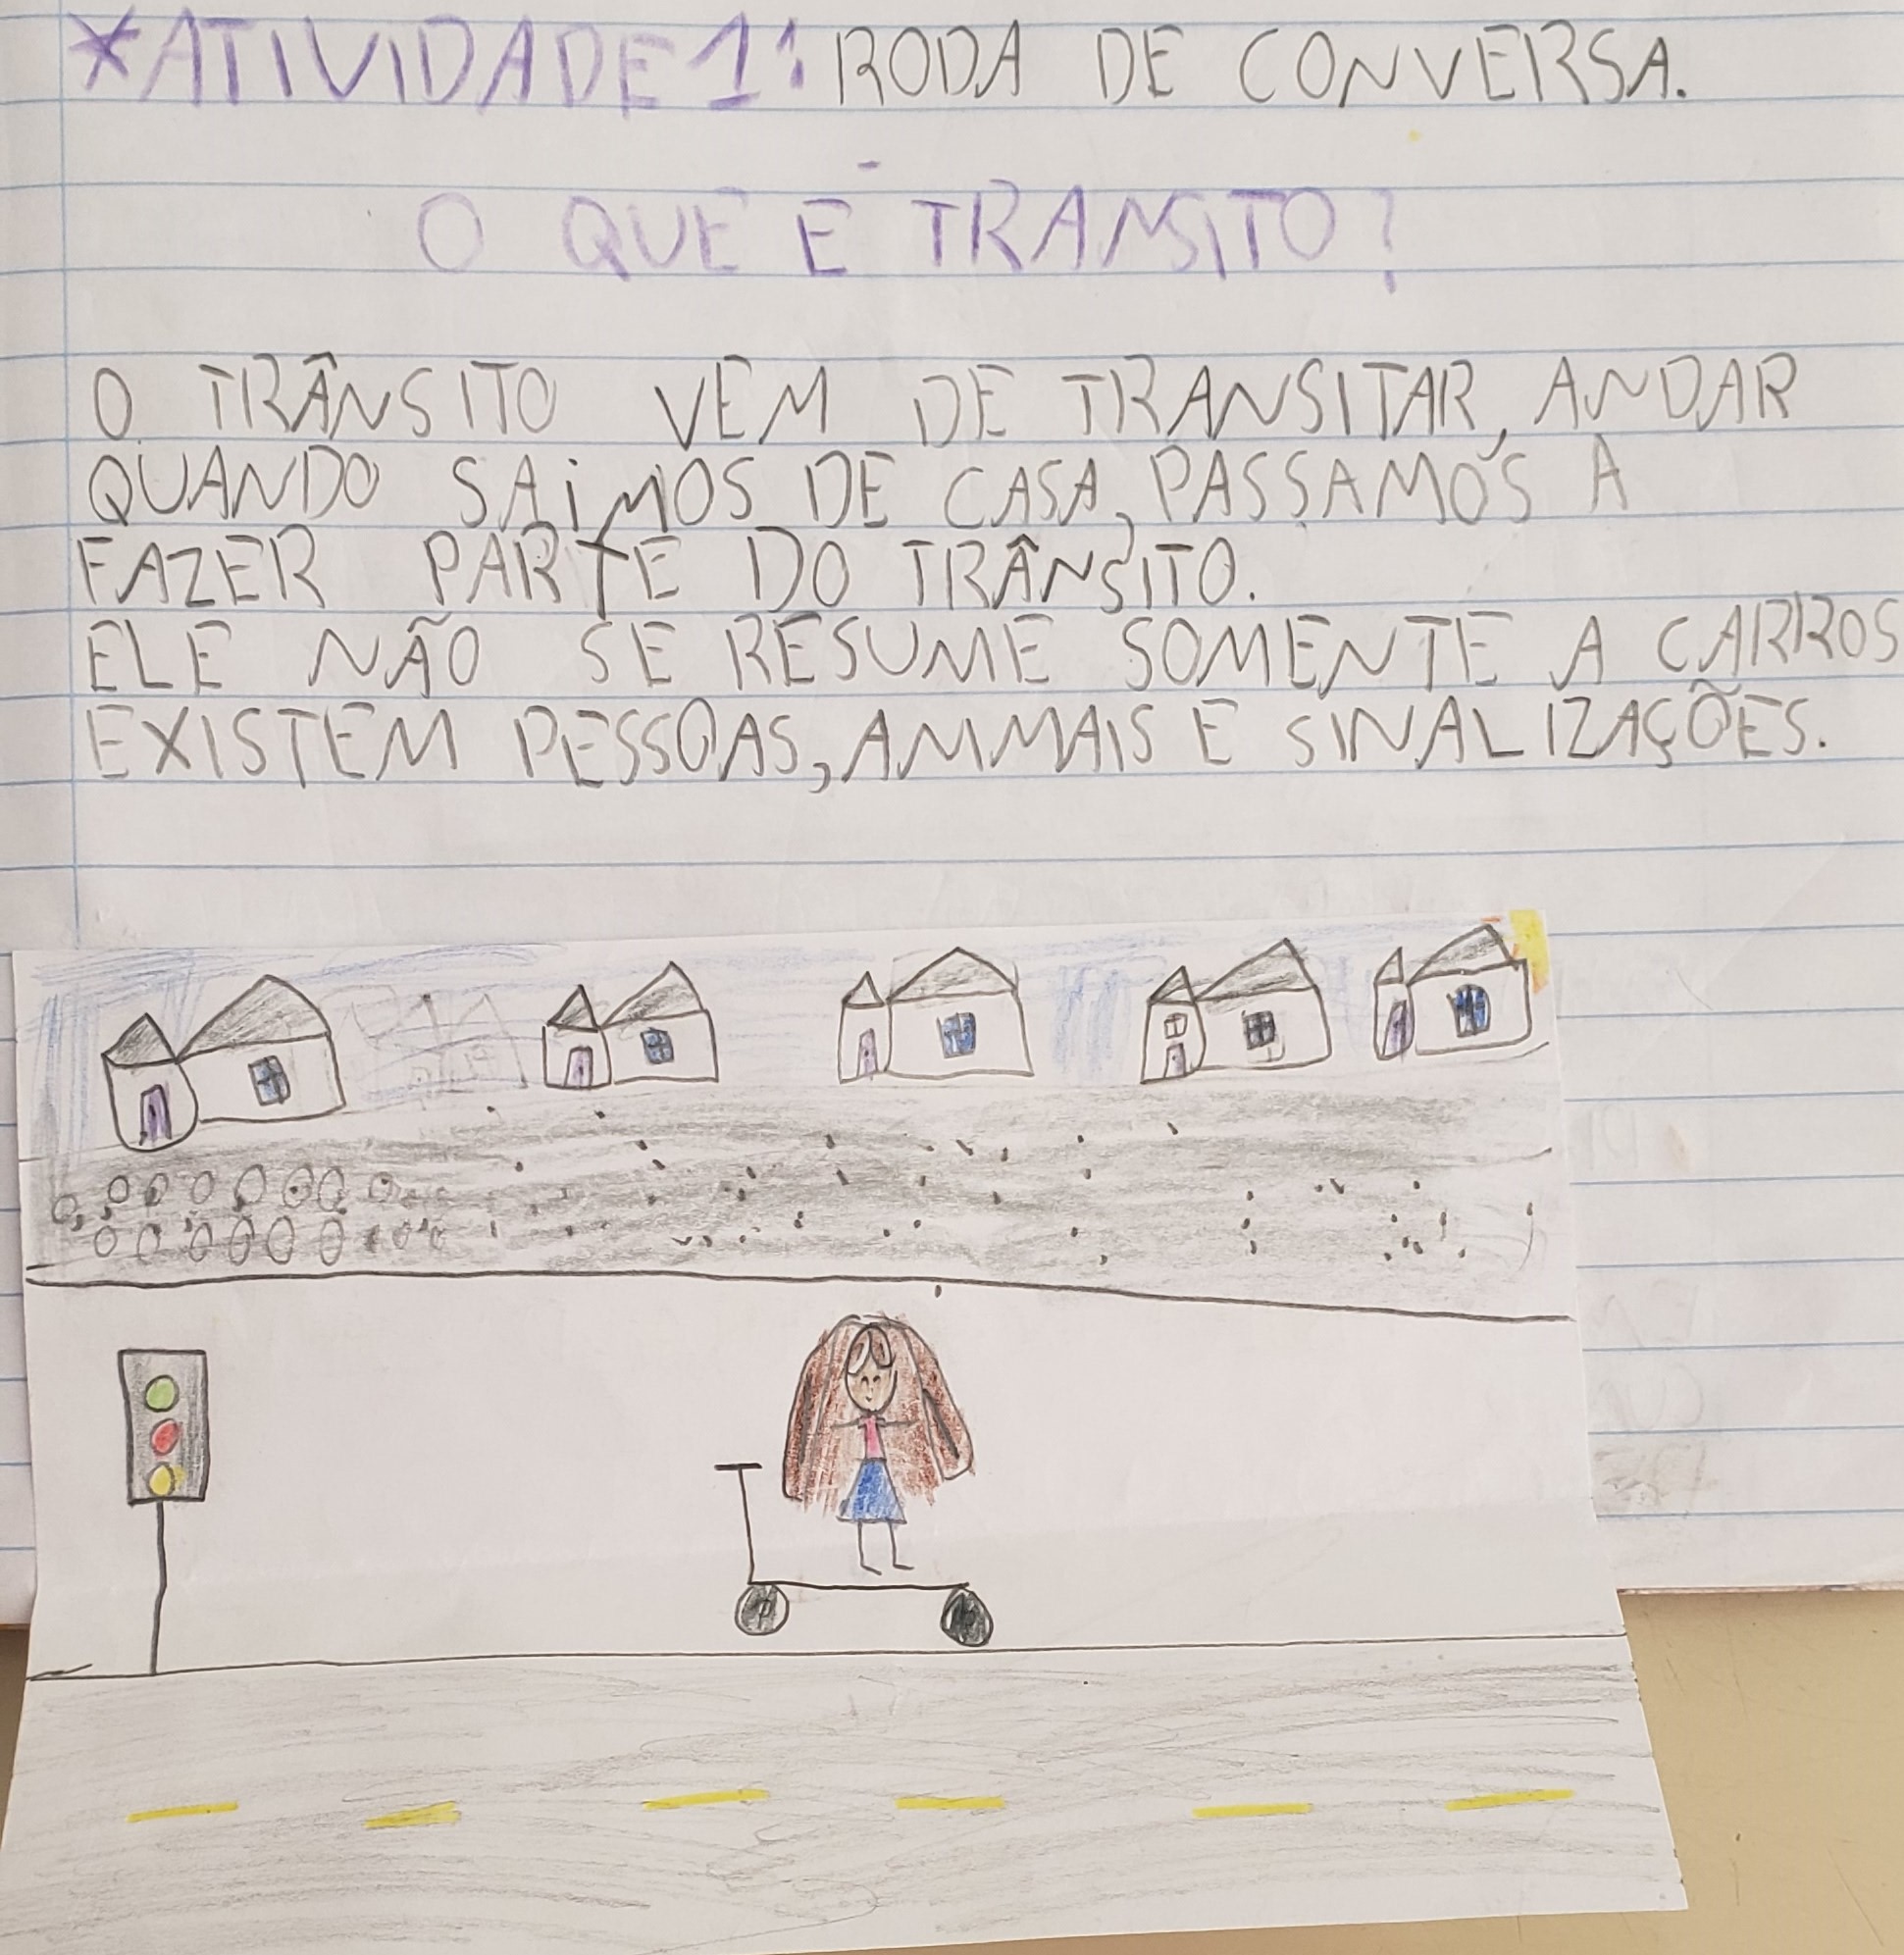 *ATIVIDADE 1: RODA DE CONVERSA.
O QUE É TRANSITO?
O TRÂNSITO VEM DE TRANSITAR, ANDAR
QUANDO SAÍMOS DE CASA, PASSAMOS A
FAZER PARTE DO TRÂNSITO.
ELE NÃO SE RESUME SOMENTE A CARROS
EXISTEM PESSOAS, ANIMAIS E SINALIZAÇÕES.